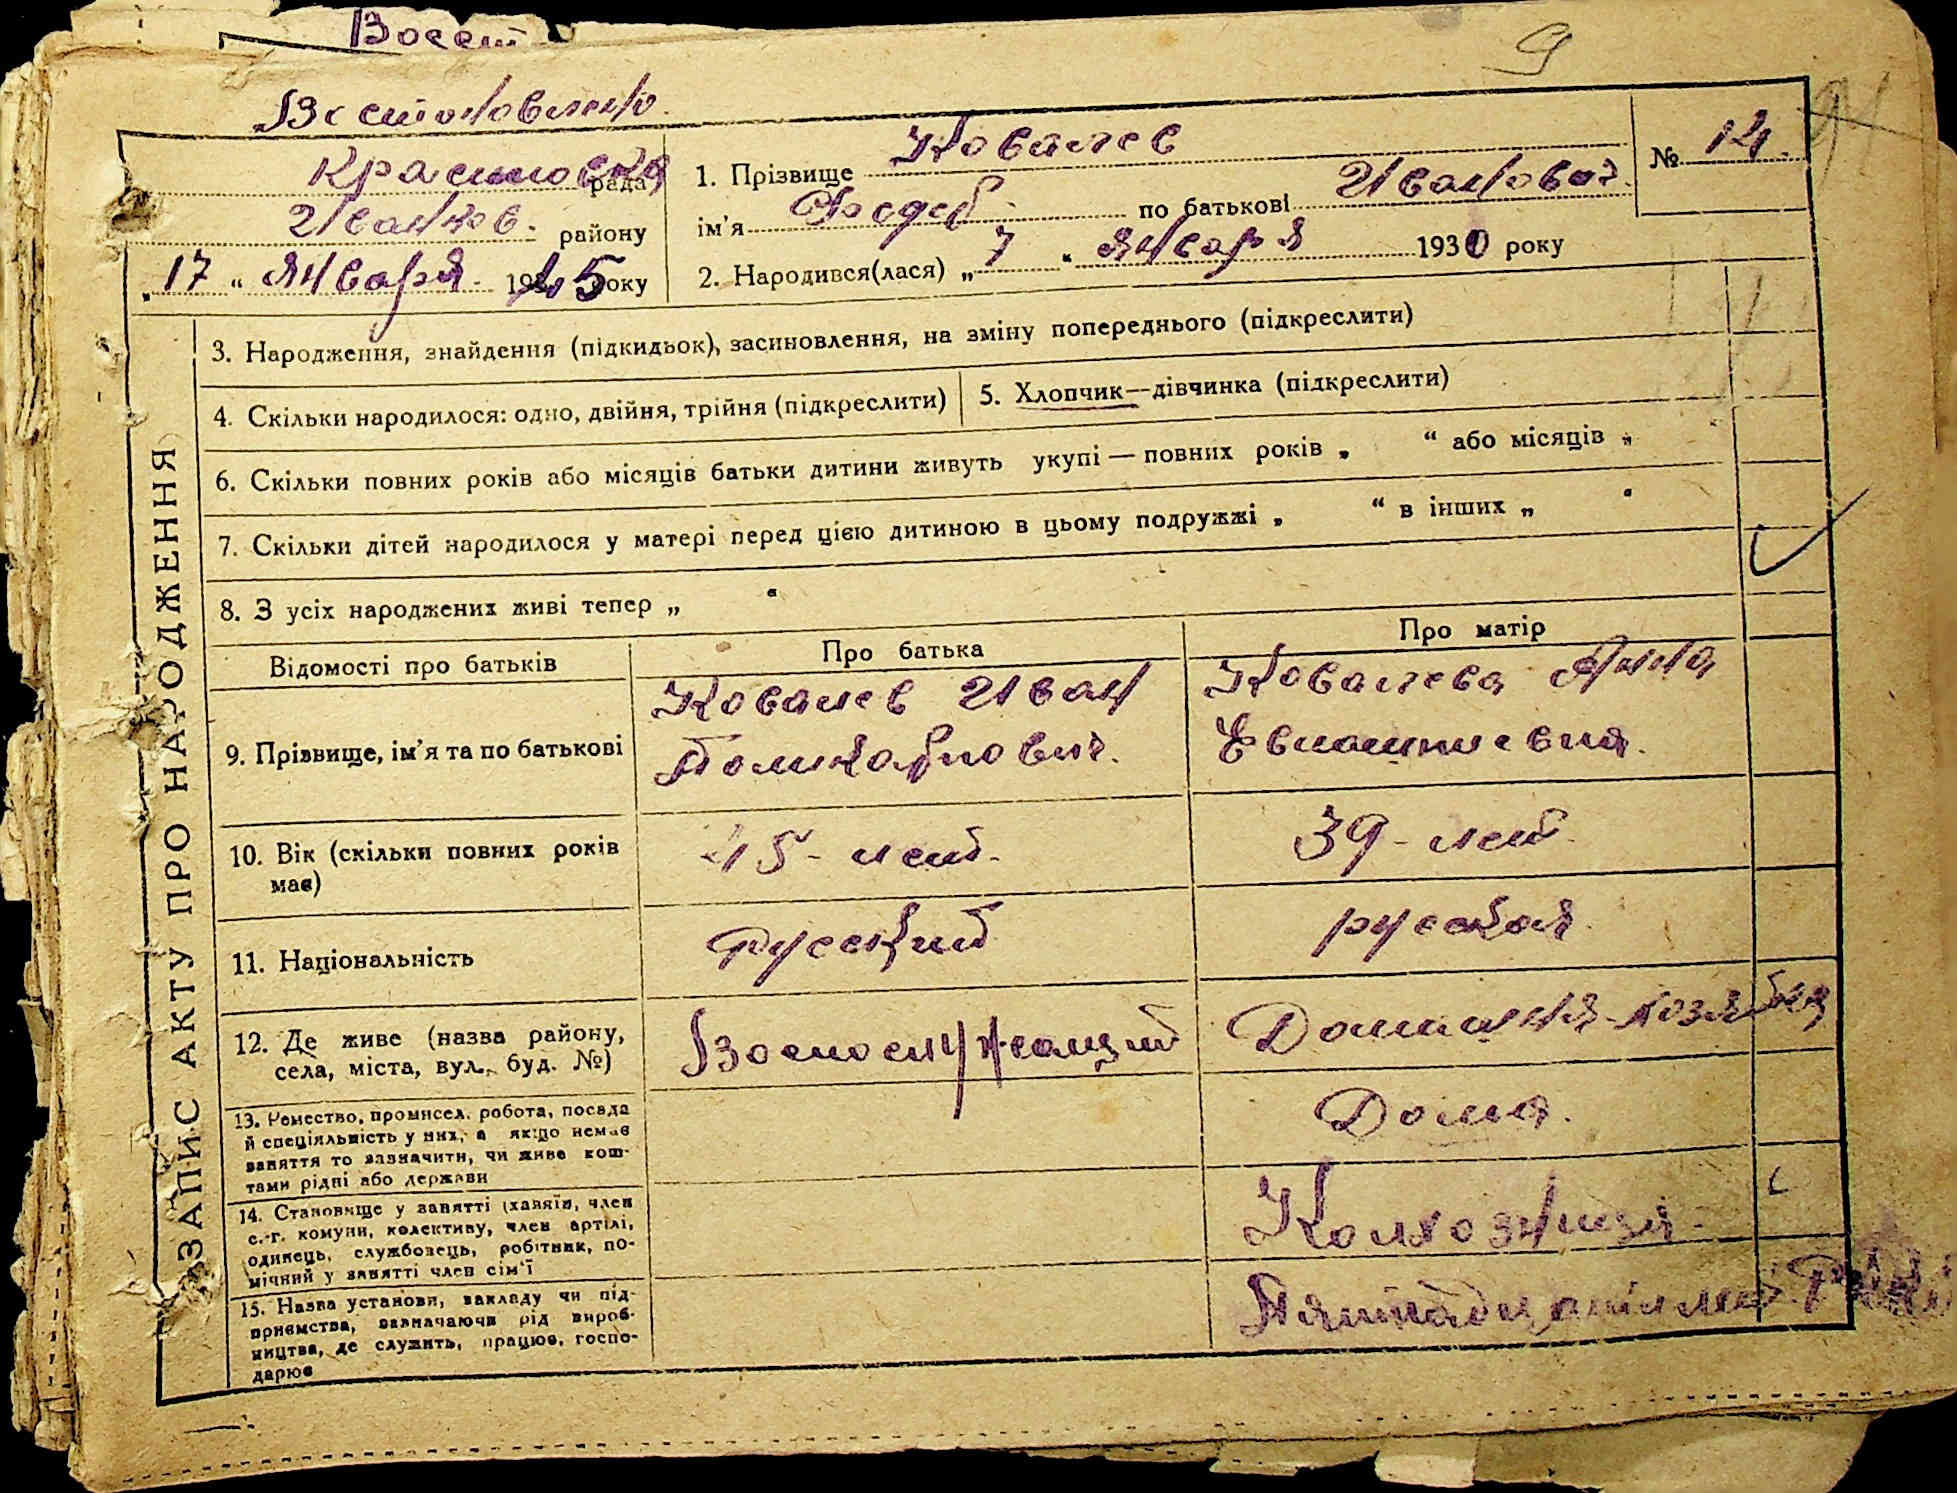 Восст
9
Востоновлено.
Красновская рада
Иванков. району
„17" января. 1945 року
1. Прізвище Ковалев
ім'я по батькові Иванович.
2. Народився(лася) „7" января 1930 року
№ 14.
ЗАПИС АКТУ ПРО НАРОДЖЕННЯ
3. Народження, знайдення (підкидьок), засиновлення, на зміну попереднього (підкреслити)
4. Скільки народилося: одно, двійня, трійня (підкреслити)
5. Хлопчик—дівчинка (підкреслити)
6. Скільки повних років або місяців батьки дитини живуть укупі — повних років „ “ або місяців „
7. Скільки дітей народилося у матері перед цією дитиною в цьому подружжі „ “ в інших „ “
8. З усіх народжених живі тепер „ “
Відомості про батьків
Про батька
Про матір
9. Прізвище, ім'я та по батькові
Ковалев Иван
Поликарпович.
Ковалева Анна
10. Вік (скільки повних років
має)
45 - лет.
39 - лет.
11. Національність
Русский
русская.
12. Де живе (назва району,
села, міста, вул., буд. №)
Военослужащий
Домашняя-хозяйка
13. Ремество, промисел, робота, посада
й спеціяльність у них, а якщо немає
заняття то зазначити, чи живе кош-
тами рідні або держави
Дома.
14. Становище у занятті (хазяїн, член
с.-г. комуни, колективу, член артілі,
одинець, службовець, робітник, по-
мічний у занятті член сім'ї
Колхозница.
15. Назва установи, закладу чи під-
приємства, зазначаючи рід вироб-
ництва, де служить, працює, госпо-
дарює